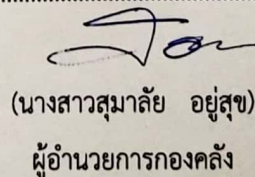 (นางสาวสุมาลัย อยู่สุข)
ผู้อำนวยการกองคลัง